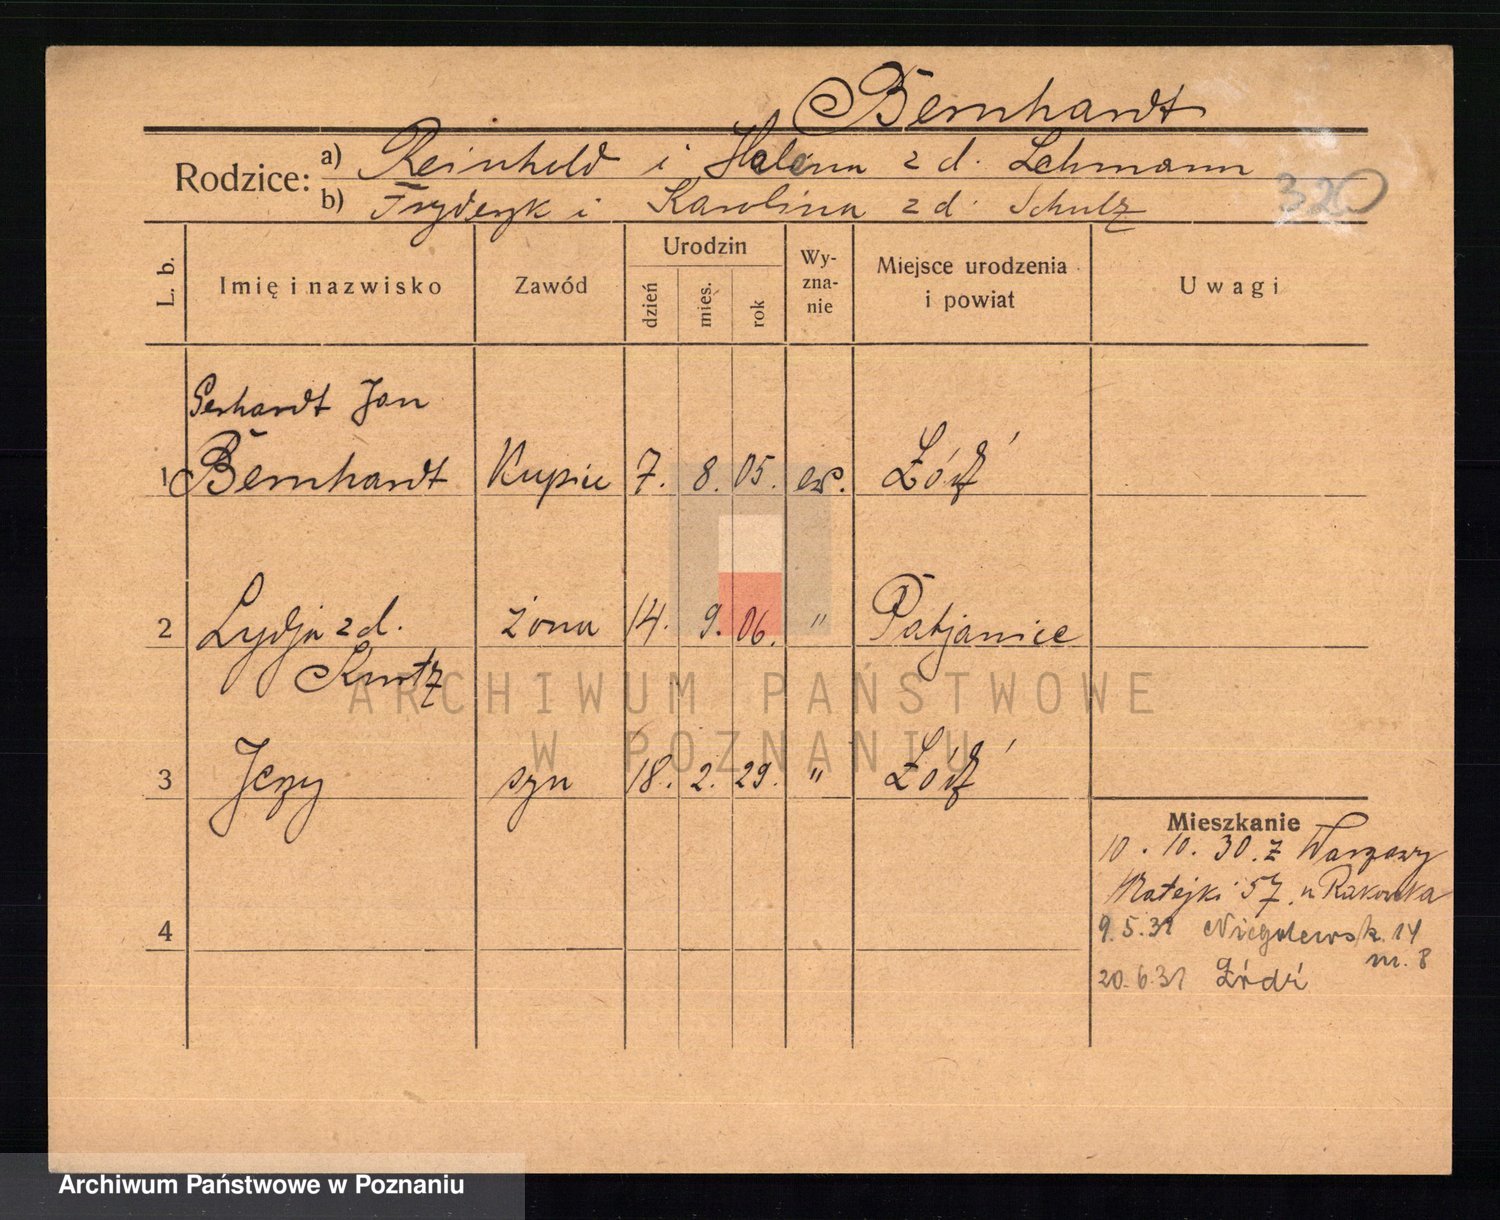 Bernhardt
Rodzice: a) Reinhold i Helena z d. Lehmann
b) Fryderyk i Karolina z d. Schulz
320
L. b. Imię i nazwisko Zawód Urodzin dzień mies. rok Wy-zna-nie Miejsce urodzenia i powiat Uwagi
Gerhardt Jan
1 Bernhardt Kupiec 7. 8. 05. ew. Łódź
2 Lydja z d. żona 14. 9. 06. " Pabjanice
Kurtz
3 Jerzy syn 18. 2. 29. " Łódź
Mieszkanie
10. 10. 30. z Warszawy
Matejki 57. u Rakowska
4
9.5.31 Niegolewsk. 14
m. 8
20.6.31 Łódź
ARCHIWUM PAŃSTWOWE
W POZNANIU
Archiwum Państwowe w Poznaniu